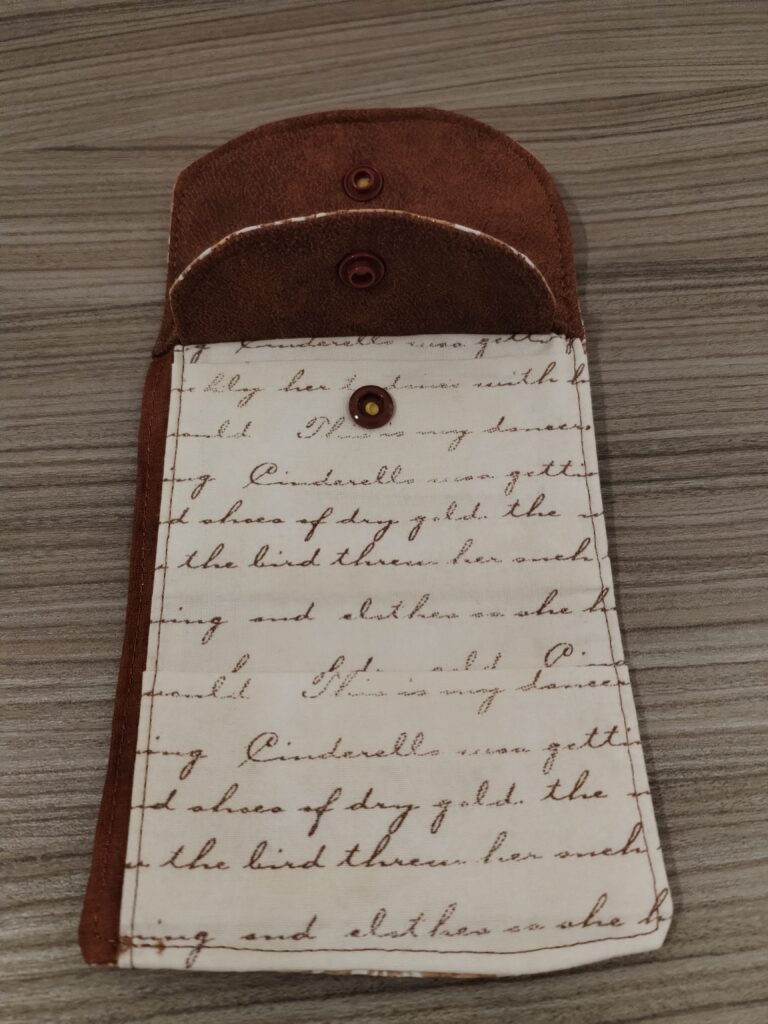 Cinderella was getti
her to dance with h
would This is my dancer
ing Cinderella was getti
d shoes of dry gold. the
the bird threw her such
ing and clothes so she h
would This is my dancer
ing Cinderella was getti
d shoes of dry gold. the
the bird threw her such
ing and clothes so she h